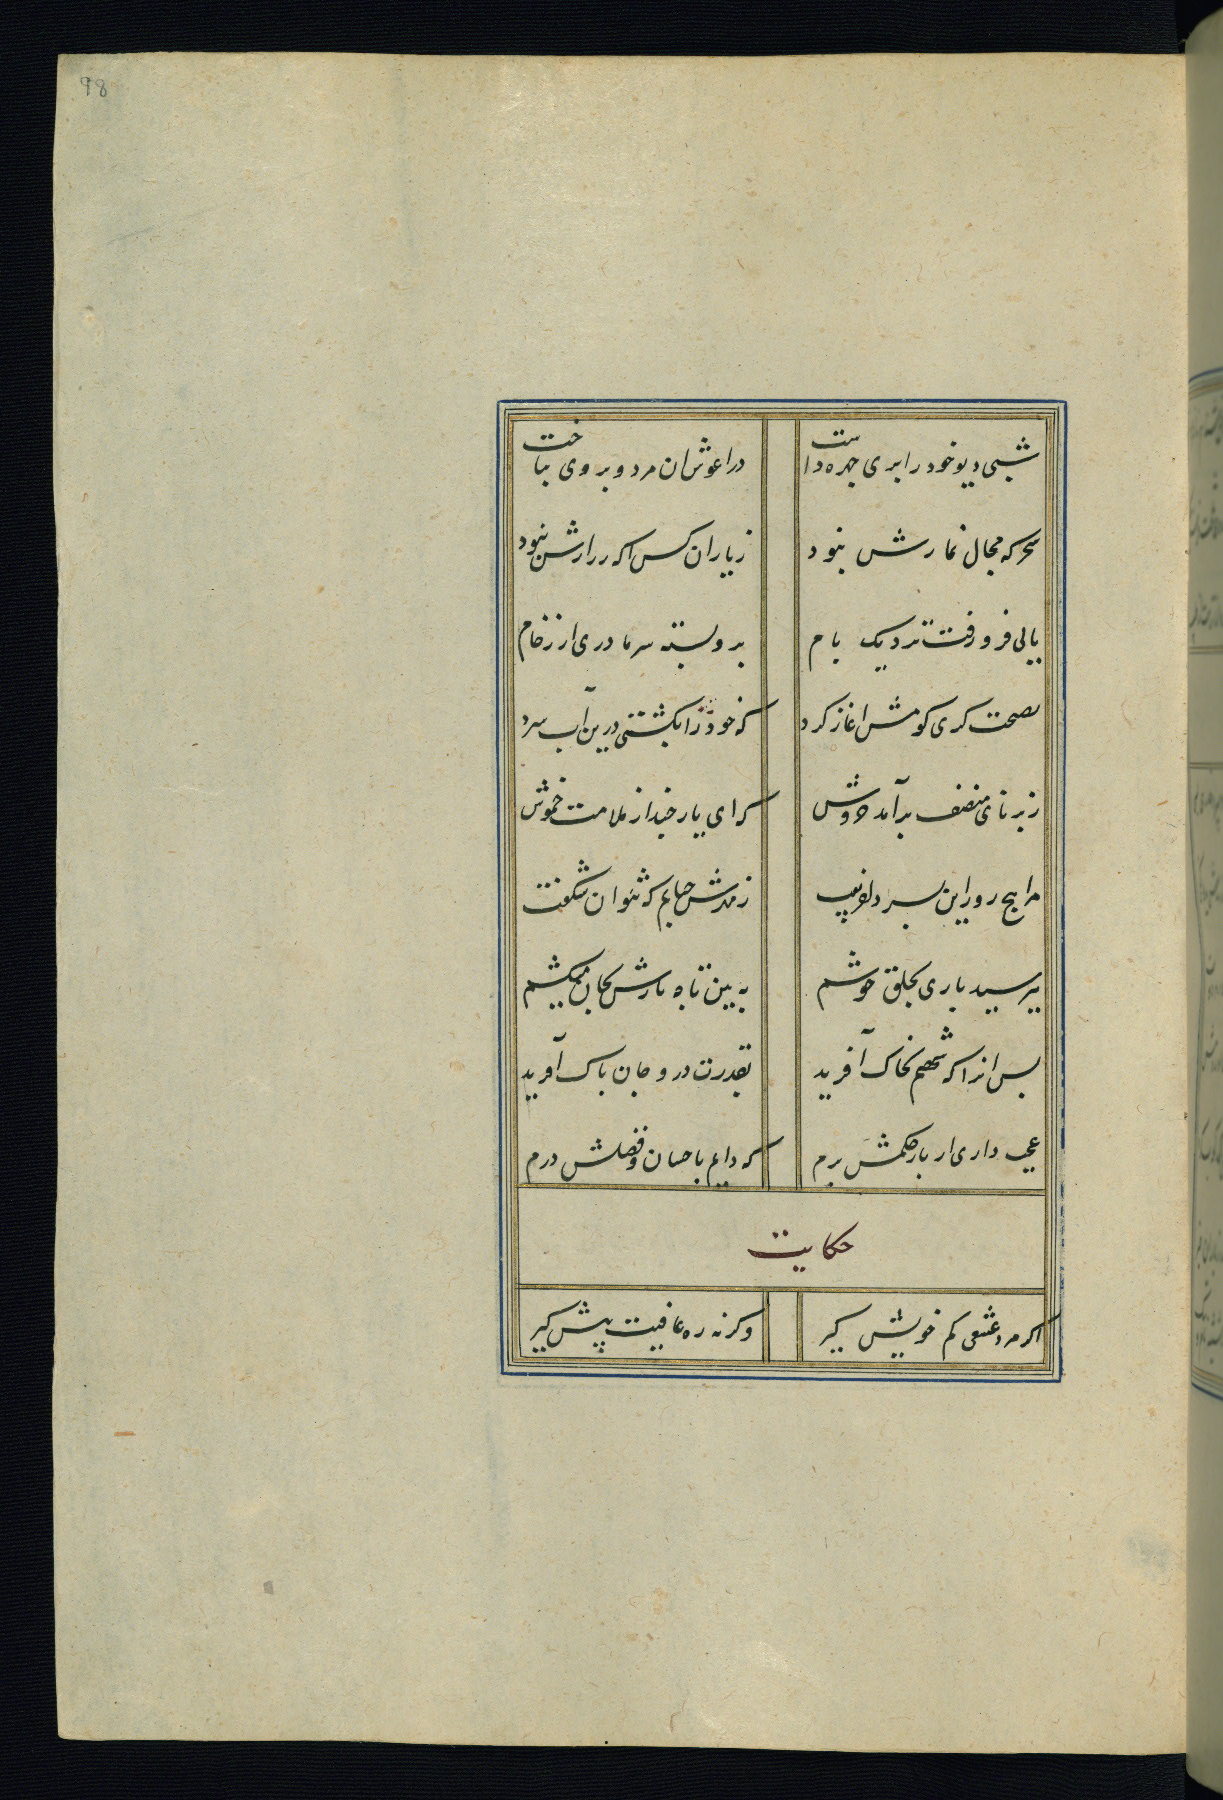 98
شبی دیو خود را پری چهره داست
در اغوش ان مرد و بر وی بتاخت
سحرکه مجال نمازش نبود
ز یاران کس اکه ز رازش نبود
بابی فرو رفت نزدیک بام
برو بسته سرما دری از زخام
نصیحت کری کومش اغاز کرد
که خود را بکشتی درین آب سرد
ز برنای منصف برآمد خروش
که ای یار چند از ملامت خموش
مرا پنج روز این پسر دلفریب
ز مهرش چنانم که نتوان شکفت
نپرسید باری بخلق خوشم
به بین تا چه بارش بجان میکشم
پس انرا که شخصم زخاک آفرید
بقدرت درو جان پاک آفرید
عجب داری ار بار حکمش برم
که دایم باحسان و فضلش درم
حکایت
اکر مرد عشقی کم خویش کیر
وکرنه ره عافیت پیش کیر